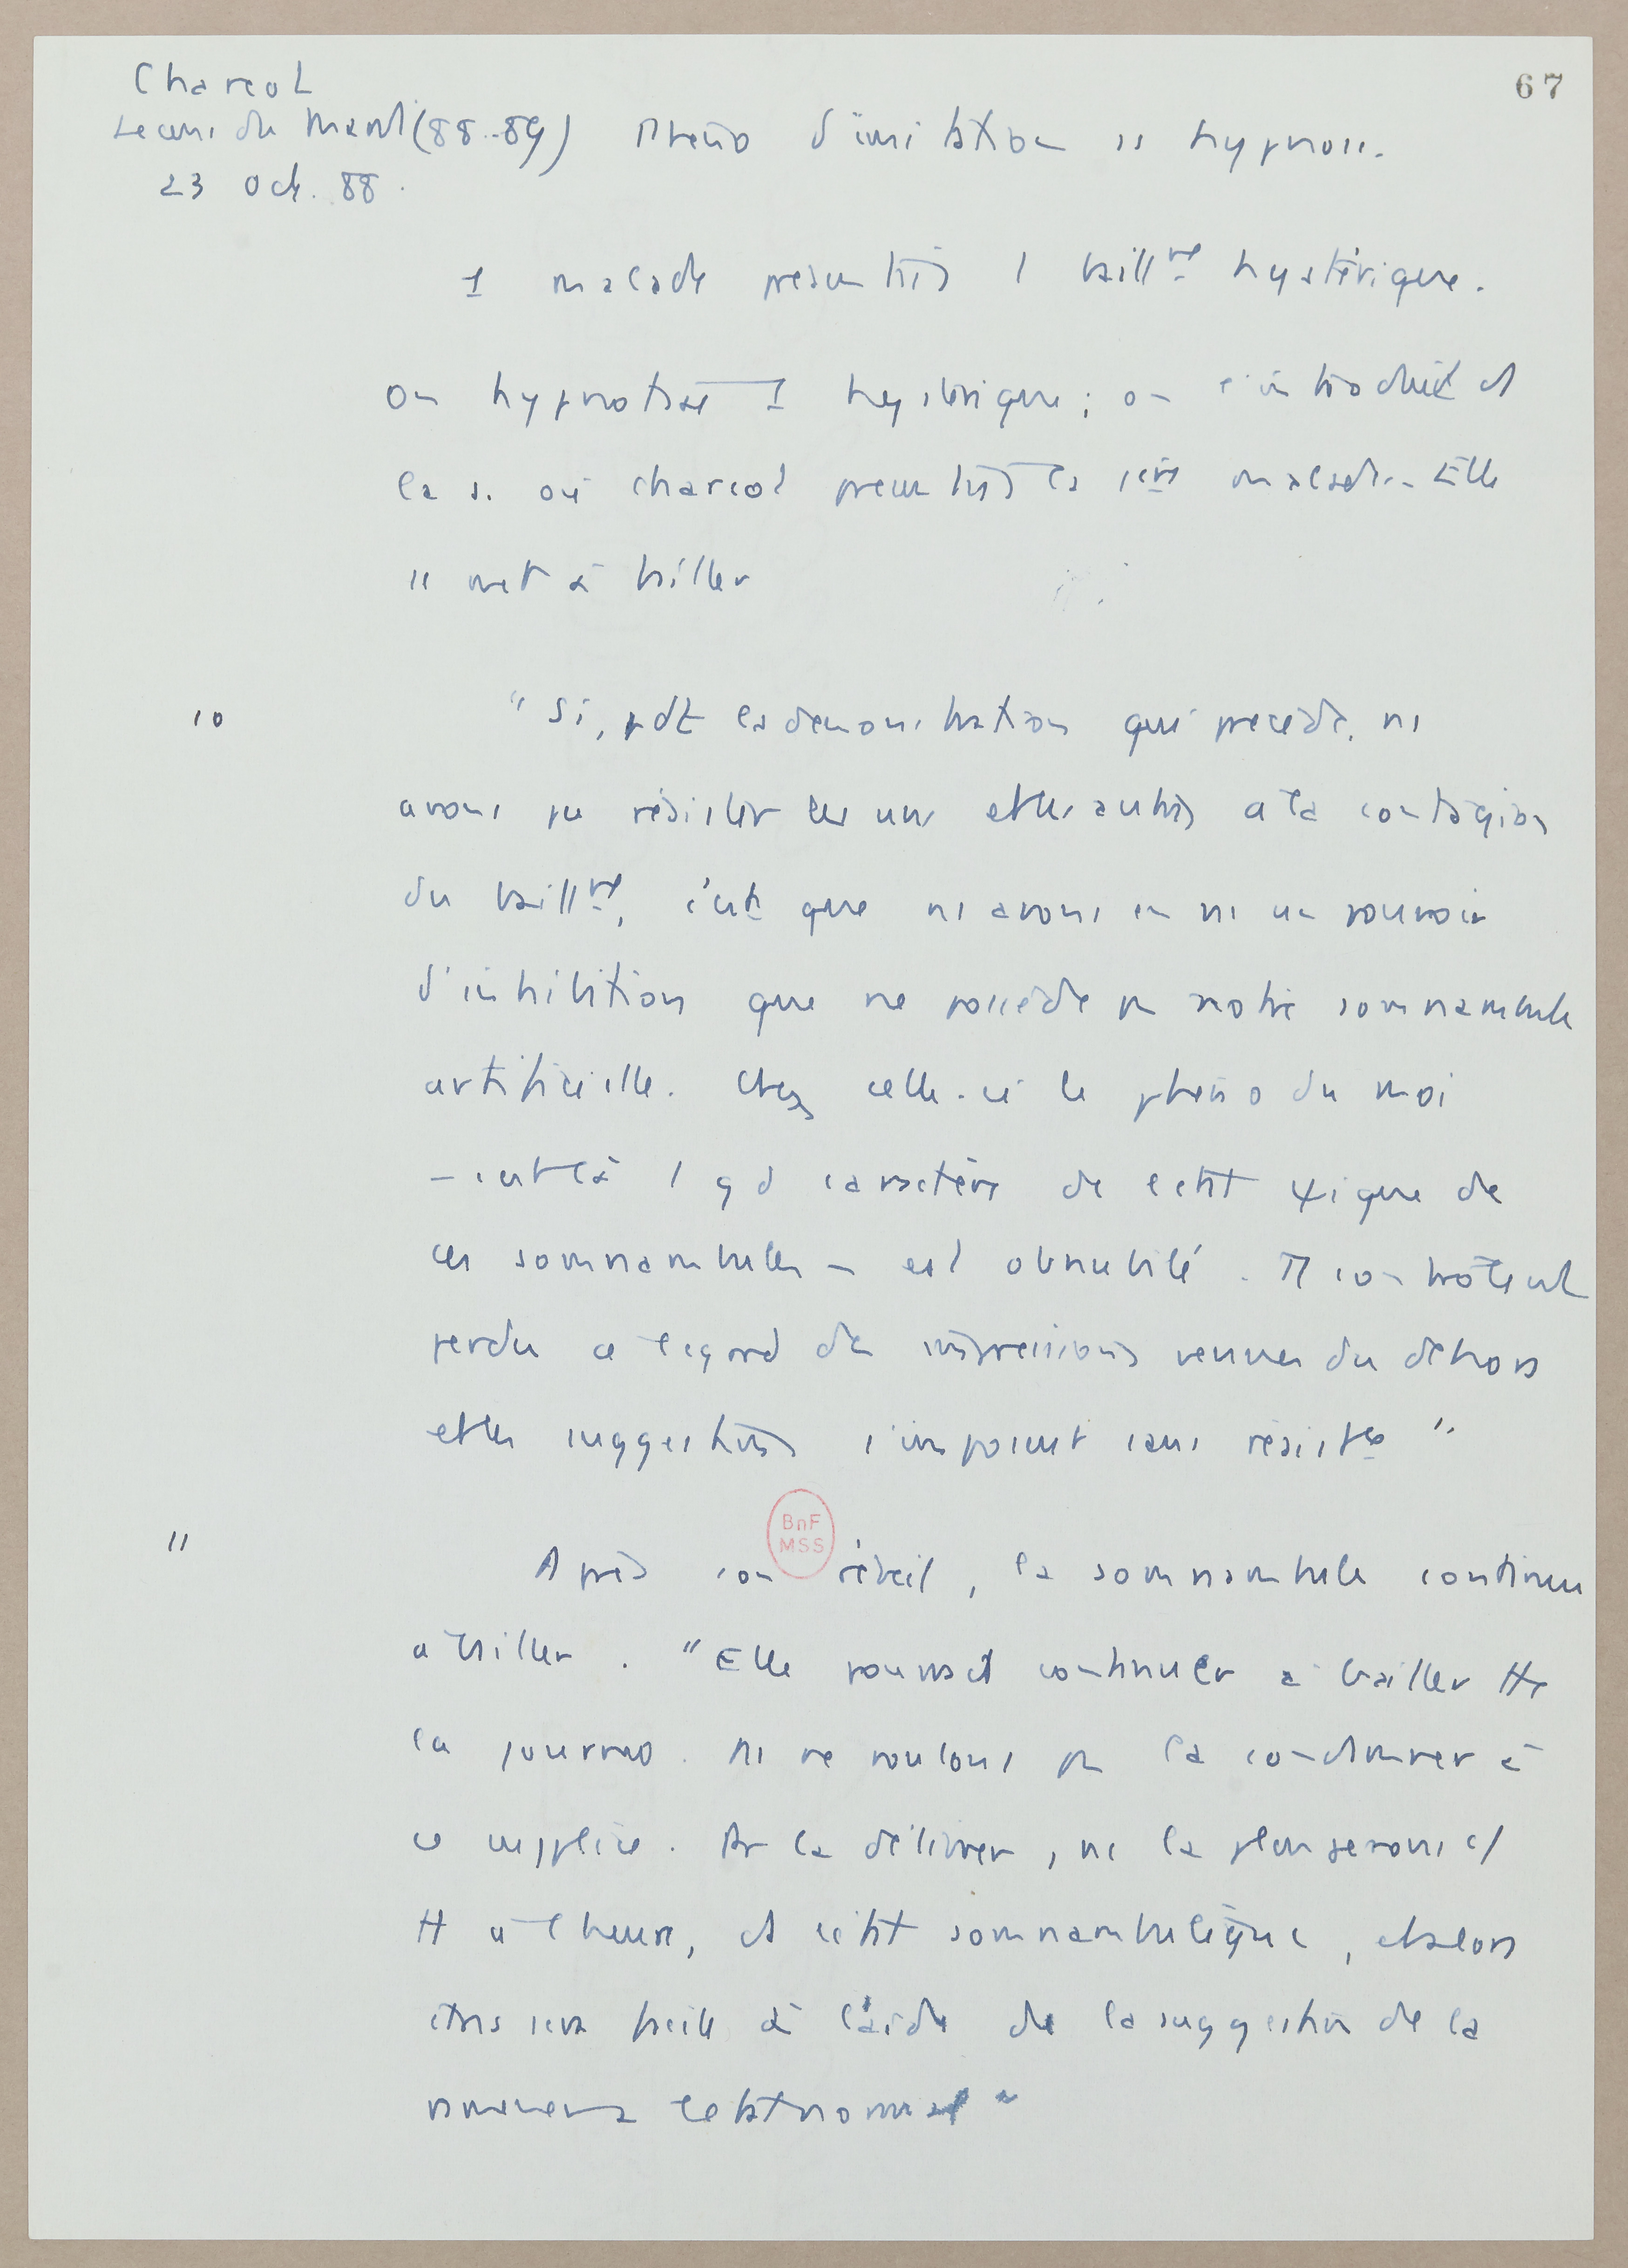 Charcot
67
Leçons du Mardi (88-89) Phéno d'imitation ss hypnose.
23 Oct. 88.
1 malade présentait 1 baill^nt hystérique.
On hypnotise 1 hystérique ; on l'introduit ds
la s. où Charcot présentait la 1ère malade. Elle
se met à bailler
10 "Si, pdt la démonstration qui précède, ns
avons pu résister les uns et les autres à la contagion
du baill^nt, c'est que ns avons en ns un pouvoir
d'inhibition que ne possède pas notre somnambule
artificielle. Chez celle-ci le phéno du moi
– c'est là 1 gd caractère de l'état ψique de
ces somnambules – est obnubilé. Tt contrôle est
perdu à l'égard des impressions venues du dehors
et les suggestions s'imposent sans résist^ce".
BnF
MSS
11 Après son réveil, la somnambule continue
à bailler. "Elle pourrait continuer à bailler tte
la journée. Ns ne voulons pas la condamner à
ce supplice. Pr la délivrer, ns la plongerons
tt à l'heure, ds l'état somnambulique, et alors
il ns sera facile à l'aide de la suggestion de la
ramener à l'état normal"